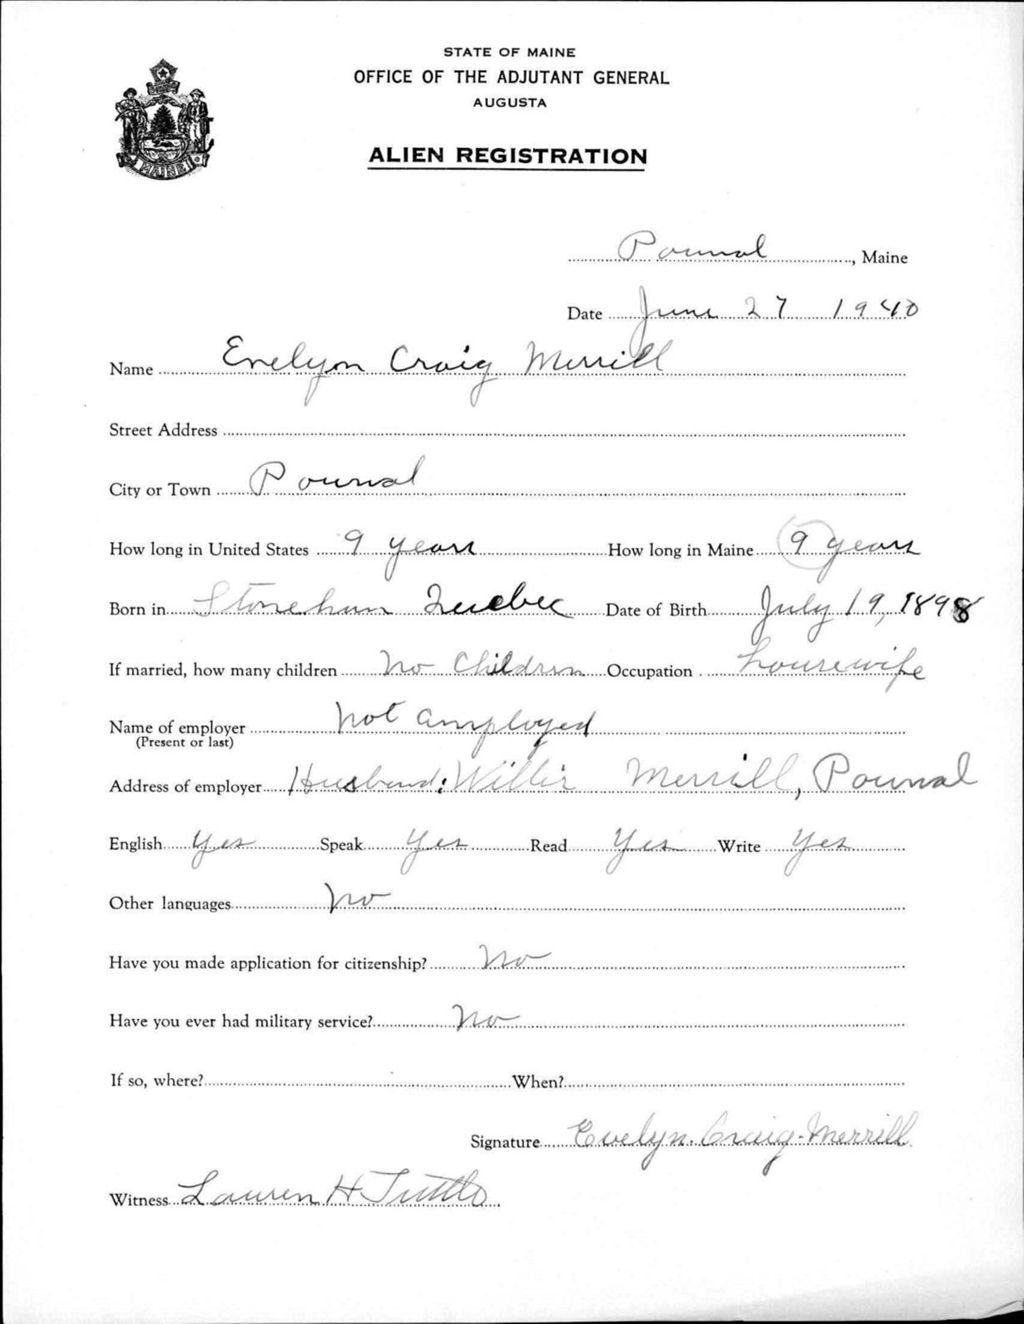 STATE OF MAINE
OFFICE OF THE ADJUTANT GENERAL
AUGUSTA
ALIEN REGISTRATION
MAINE
Pownal, Maine
Date June 27 1940
Name Evelyn Craig Merrill
Street Address
City or Town Pownal
How long in United States 9 years How long in Maine 9 years
Born in Stoneham Quebec Date of Birth July 19, 1898
If married, how many children No Children Occupation housewife
Name of employer not employed
(Present or last)
Address of employer Husband: Willis Merrill, Pownal
English Yes Speak Yes Read Yes Write Yes
Other languages No
Have you made application for citizenship? No
Have you ever had military service? No
If so, where? When?
Signature Evelyn. Craig-Merrill
Witness Lauren H Tuttle